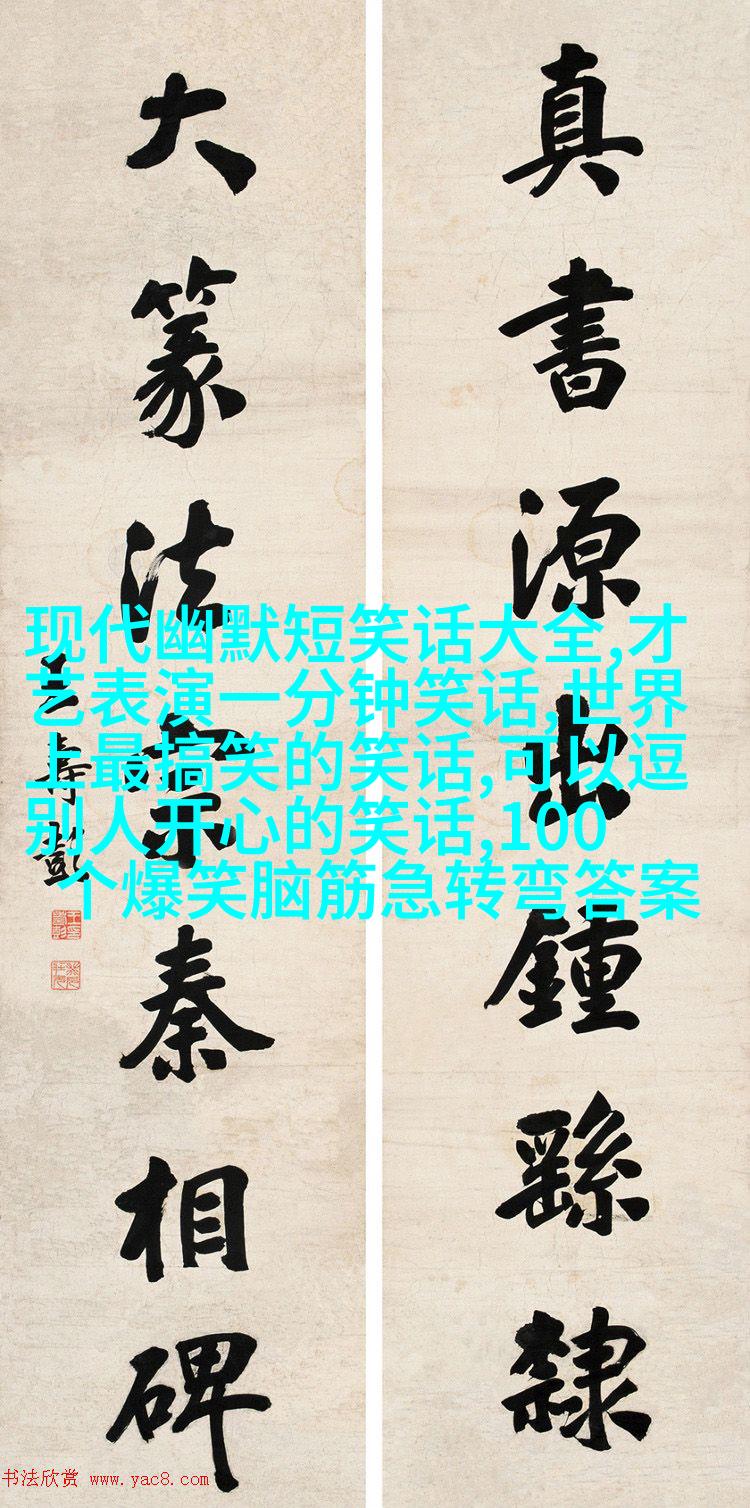 真書源出鍾繇隸
大篆法宗秦相碑
王壽彭
现代幽默短笑话大全,才
艺表演一分钟笑话,世界
上最搞笑的笑话,可以逗
别人开心的笑话,100
个爆笑脑筋急转弯答案
书法欣赏 www.yac8.com